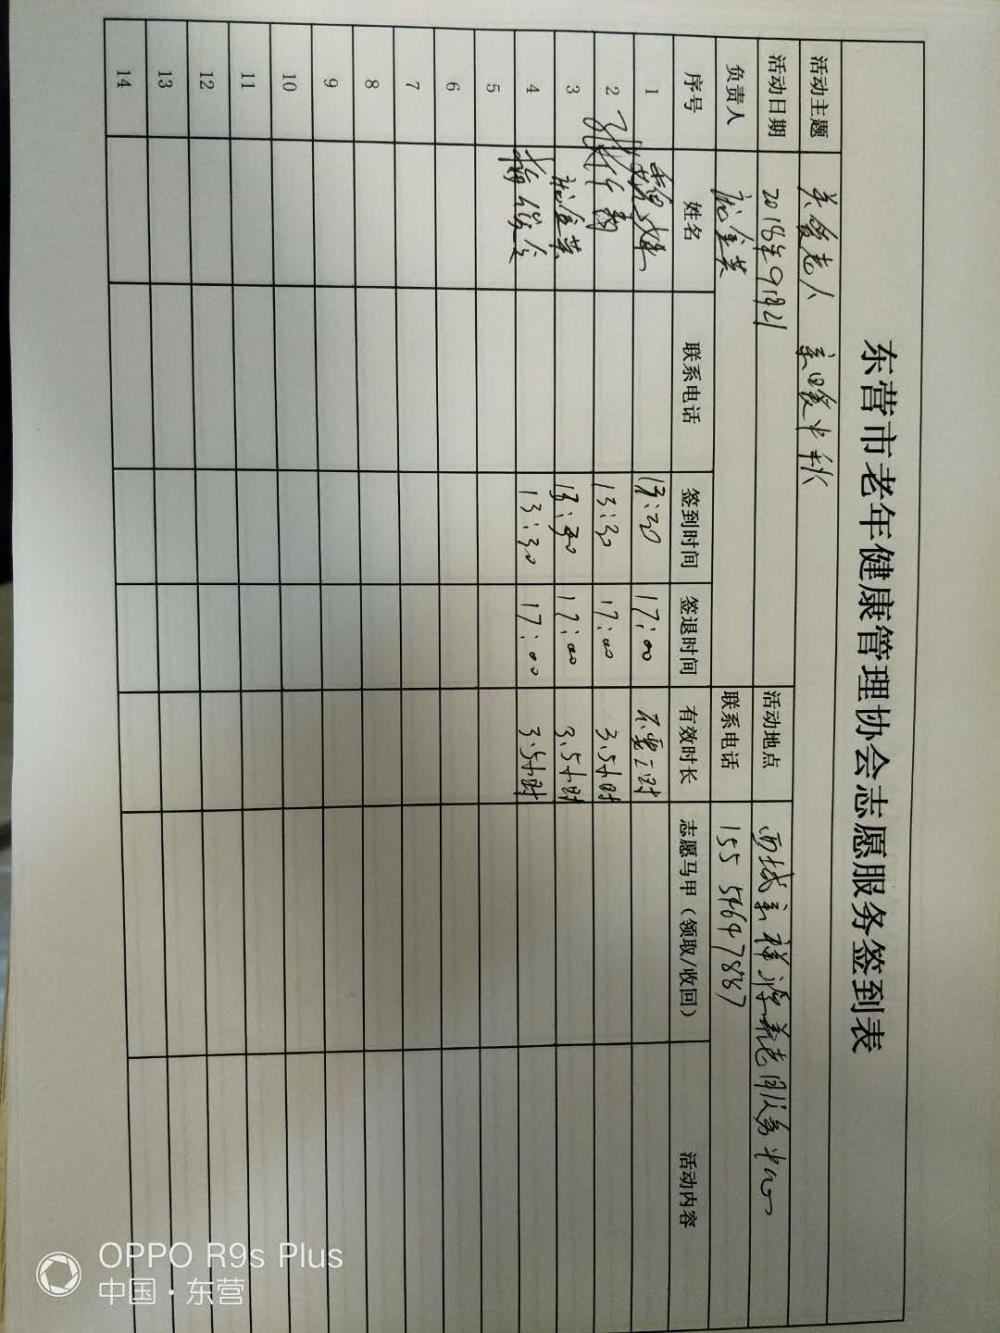 东营市老年健康管理协会志愿服务签到表
活动主题 关爱老人 亲暖中秋
活动日期 2018年9月21 活动地点 西城 祥 养老服务中心
负责人 金英 联系电话 155 54647887
序号 姓名 联系电话 签到时间 签退时间 有效时长 志愿马甲（领取/收回） 活动内容
1 13:30 17:00 不要工时
2 13:30 17:00 3.5小时
3 金英 13:30 17:00 3.5小时
4 13:30 17:00 3.5小时
5
6
7
8
9
10
11
12
13
14
OPPO R9s Plus
中国·东营